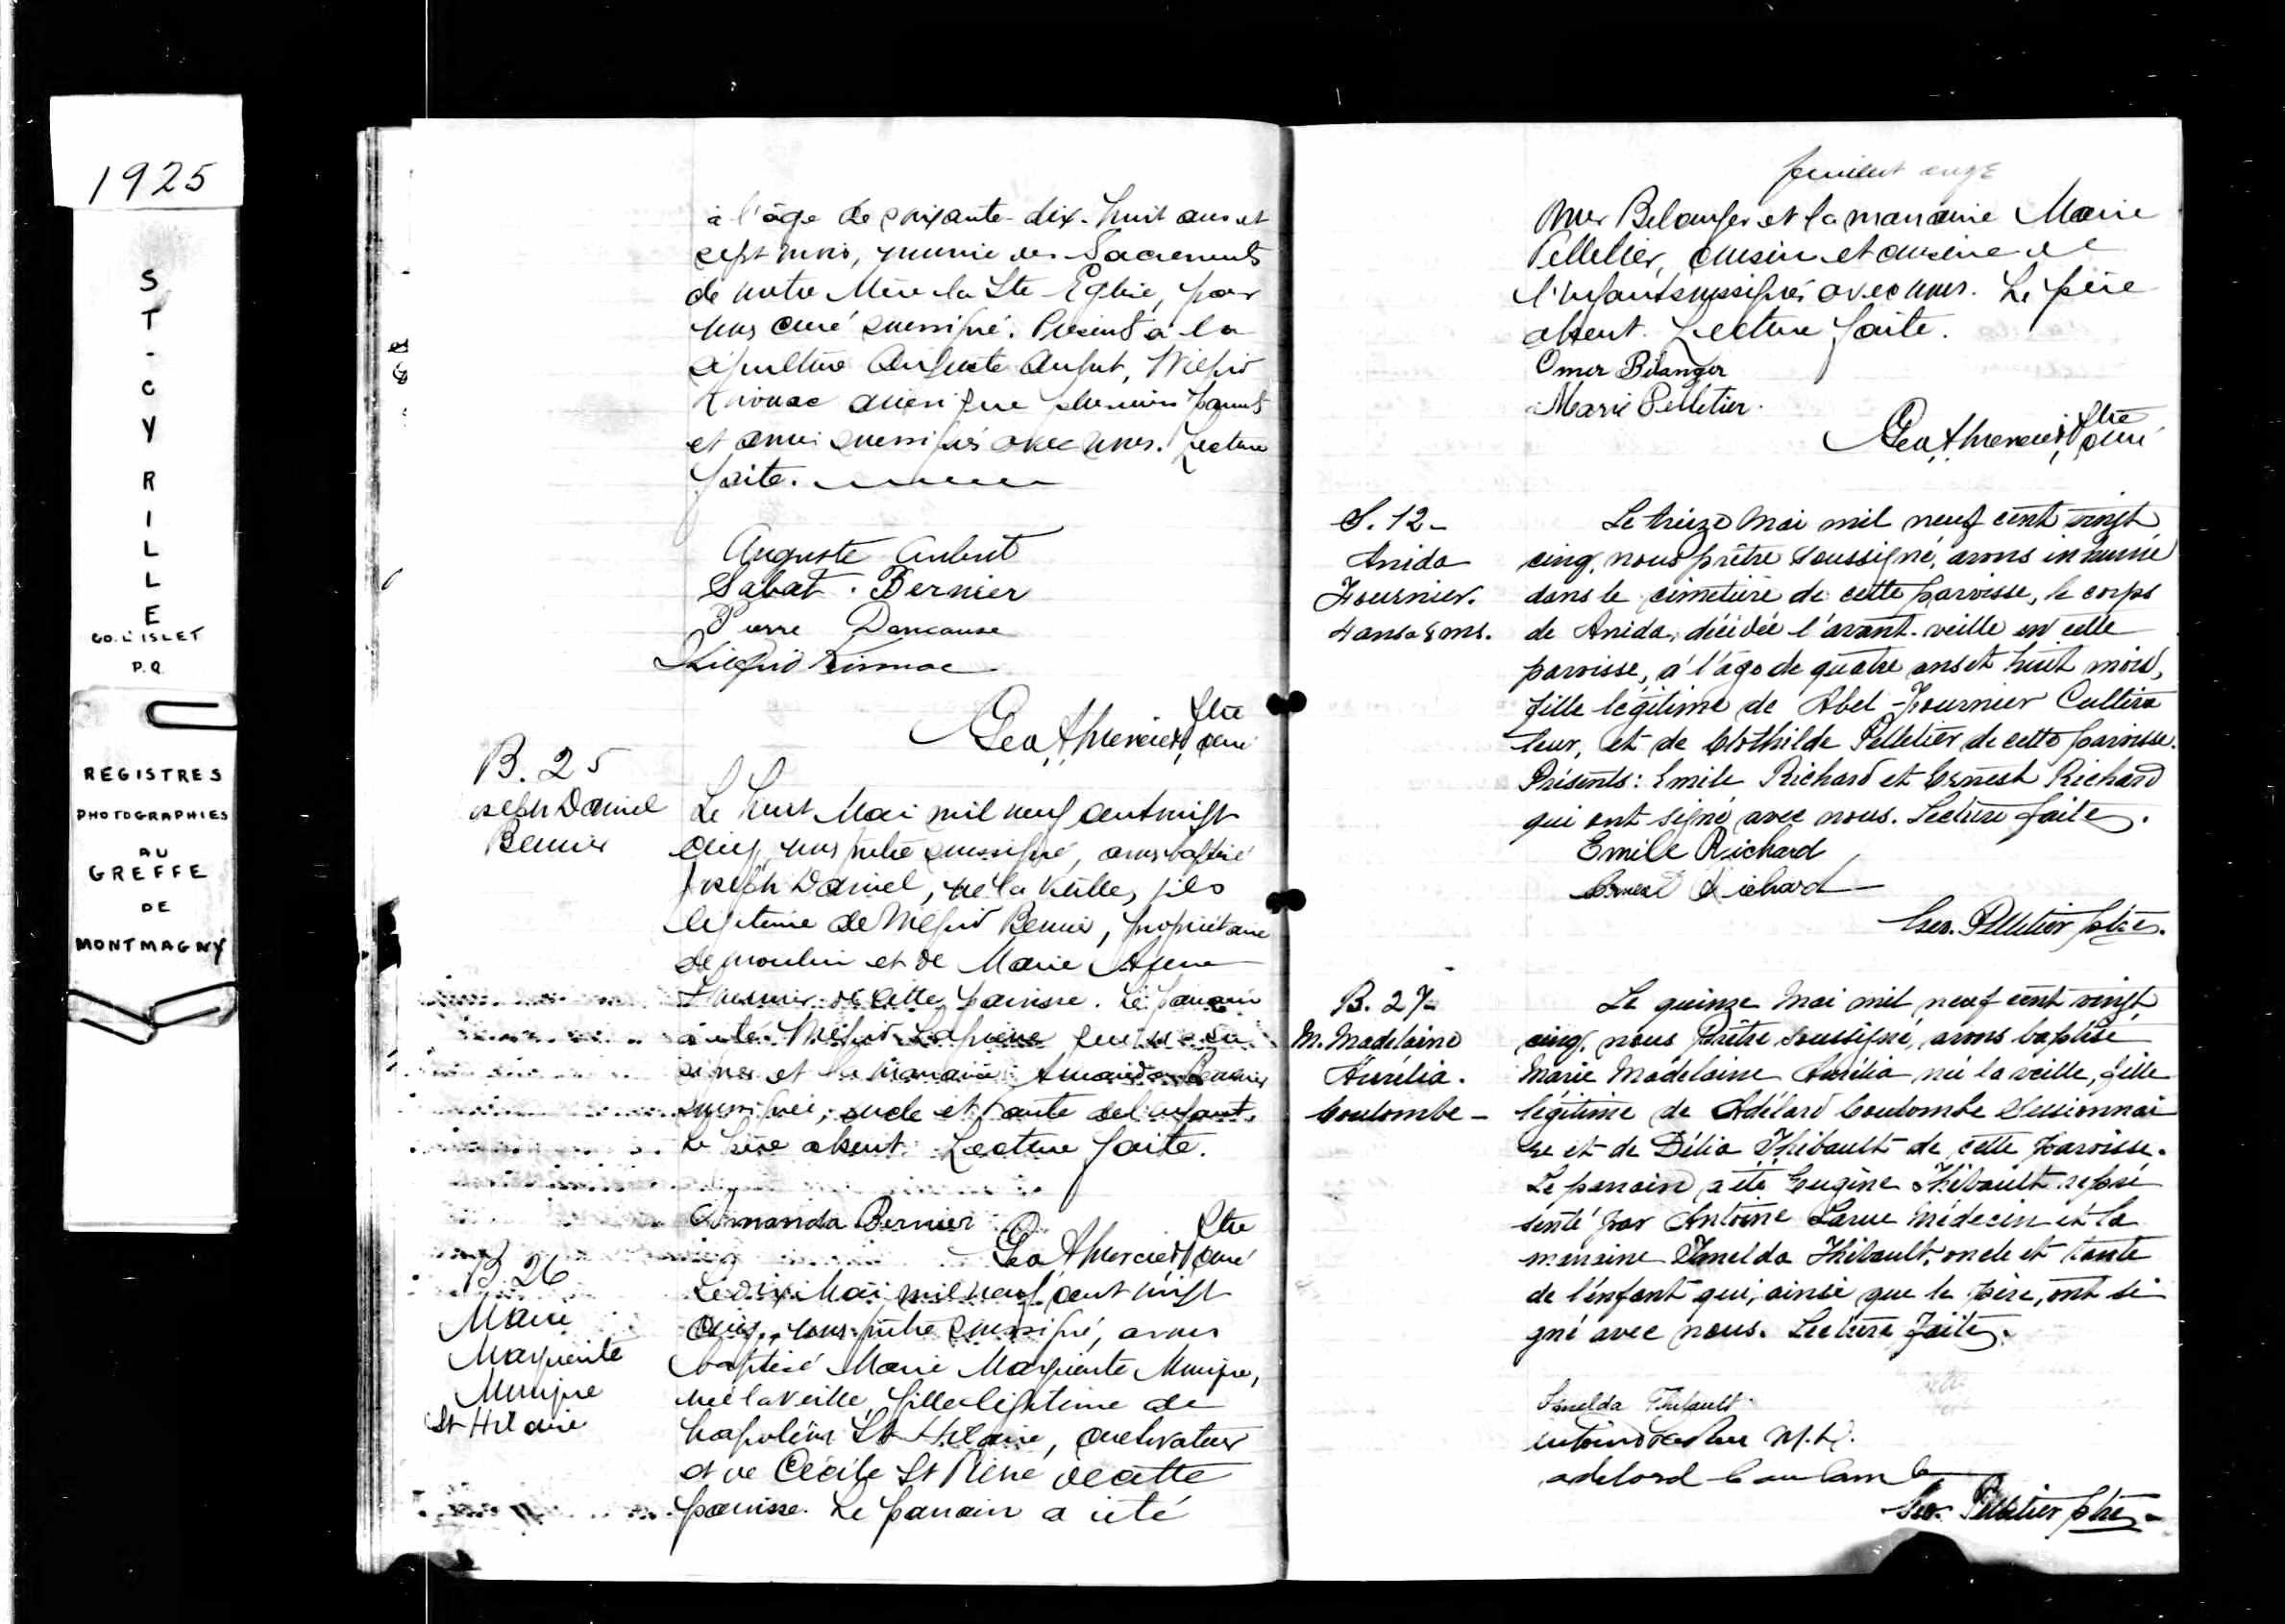 1925
ST-CYRILLE
CO. L'ISLET
P.Q.
REGISTRES
PHOTOGRAPHIES
AU
GREFFE
DE
MONTMAGNY
à l'âge de soixante-dix-huit ans et
sept mois, munie des Sacrements
de notre Mère la Ste Eglise, par
nous curé soussigné. Présents à la
sépulture Auguste Aubut, Wilfrid
Kirouac ainsi que plusieurs parents
et amis soussignés avec nous. Lecture
faite.
Auguste Aubut
Sabat. Bernier
Pierre Dancause
Wilfrid Kirouac
Geo A Mercier Ptre
curé
B. 25
Joseph Daniel
Bernier
Le huit Mai mil neuf cent vingt
cinq, nous prêtre soussigné, avons baptisé
Joseph Daniel, né la veille, fils
légitime de Wilfrid Bernier, propriétaire
de moulin et de Marie
de cette paroisse. Le parrain
a été Wilfrid qui n'a su
signer et la marraine Amanda Bernier
soussignée, oncle et tante de l'enfant.
Le père absent. Lecture faite.
Amanda Bernier
Geo A Mercier Ptre
curé
B 26
Marie
Marguerite
Monique
St Hilaire
Le dix Mai mil neuf cent vingt
cinq, nous prêtre soussigné, avons
baptisé Marie Marguerite Monique,
née la veille, fille légitime de
Napoléon St Hilaire, cultivateur
et de Cécile St Pierre de cette
paroisse. Le parrain a été
feuillet onze
Omer Belanger et la marraine Marie
Pelletier, cousin et cousine de
l'enfant soussignés avec nous. Le père
absent. Lecture faite.
Omer Bélanger
Marie Pelletier.
Geo A Mercier Ptre
curé
S. 12-
Anida
Fournier.
4 ans 8 ms.
Le treize Mai mil neuf cent vingt
cinq, nous prêtre soussigné, avons inhumé
dans le cimetière de cette paroisse, le corps
de Anida, décédée l'avant-veille en cette
paroisse, a l'âge de quatre ans et huit mois,
fille légitime de Abel Fournier Cultiva
teur, et de Clothilde Pelletier de cette paroisse.
Présents: Emile Richard et Ernest Richard
qui ont signé avec nous. Lecture faite.
Emile Richard
Ernest Richard
Geo. Pelletier ptre.
B. 27-
M. Madelaine
Aurélia.
Coulombe-
Le quinze Mai mil neuf cent vingt
cinq, nous Prêtre soussigné, avons baptisé
Marie Madelaine Aurélia née la veille, fille
légitime de Adélard Coulombe
re et de Délia Thibault de cette Paroisse.
Le parrain a été Eugène Thibault repré
senté par Antoine Larue Médecin et la
marraine Imelda Thibault, oncle et tante
de l'enfant qui, ainsi que le père, ont si
gné avec nous. Lecture faite.
Imelda Thibault
Antoine LaRue M.D.
adelard Coulombe
Geo. Pelletier ptre-